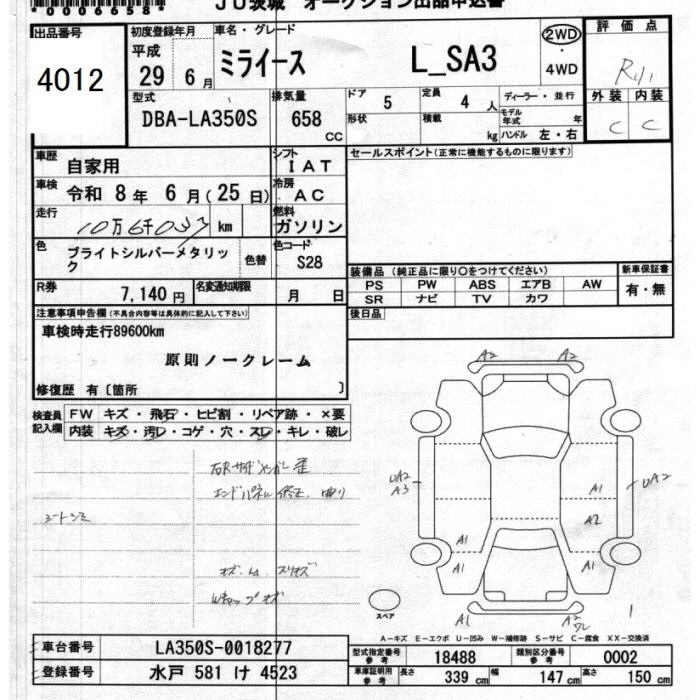 *0006658*
JU茨城 オークション出品申込書
出品番号
4012
初度登録年月
平成
29 年 6 月
車名・グレード
ミライース L_SA3
2WD
・
4WD
評価点
R
外装 内装
C C
型式
DBA-LA350S
排気量
658
CC
ドア 5
形状
定員 4 人
積載 kg
ディーラー・並行
モデル年式 年
ハンドル 左・右
車歴
自家用
シフト
IAT
車検
令和 8 年 6 月(25 日)
冷房
AC
走行
10万6千033 km
燃料
ガソリン
色
ブライトシルバーメタリッ
ク
色替
色コード
S28
R券
7,140 円
名変通知期限
月 日
セールスポイント(正常に機能するものに限ります)
装備品 (純正品に限り○をつけてください)
PS PW ABS エアB AW
SR ナビ TV カワ
新車保証書
有・無
後日品
注意事項申告欄(不具合内容等は具体的に記入して下さい)
車検時走行89600km
原則ノークレーム
修復歴 有〔箇所 〕
検査員
記入欄
FW キズ・飛石・ヒビ割・リペア跡・×要
内装 キズ・汚レ・コゲ・穴・スレ・キレ・破レ
エンドパネル 修正 曲り
シートシミ
A2 A2
UA2
A3
A1
A2
UA2
A1 A1
A1 A1
A1 A2
スペア
A-キズ E-エクボ U-凹み W-補修跡 S-サビ C-腐食 XX-交換済
車台番号
LA350S-0018277
登録番号
水戸 581 け 4523
型式指定番号
参考
18488
類別区分番号
参考
0002
車庫証明用
参考
長さ 339 cm 幅 147 cm 高さ 150 cm